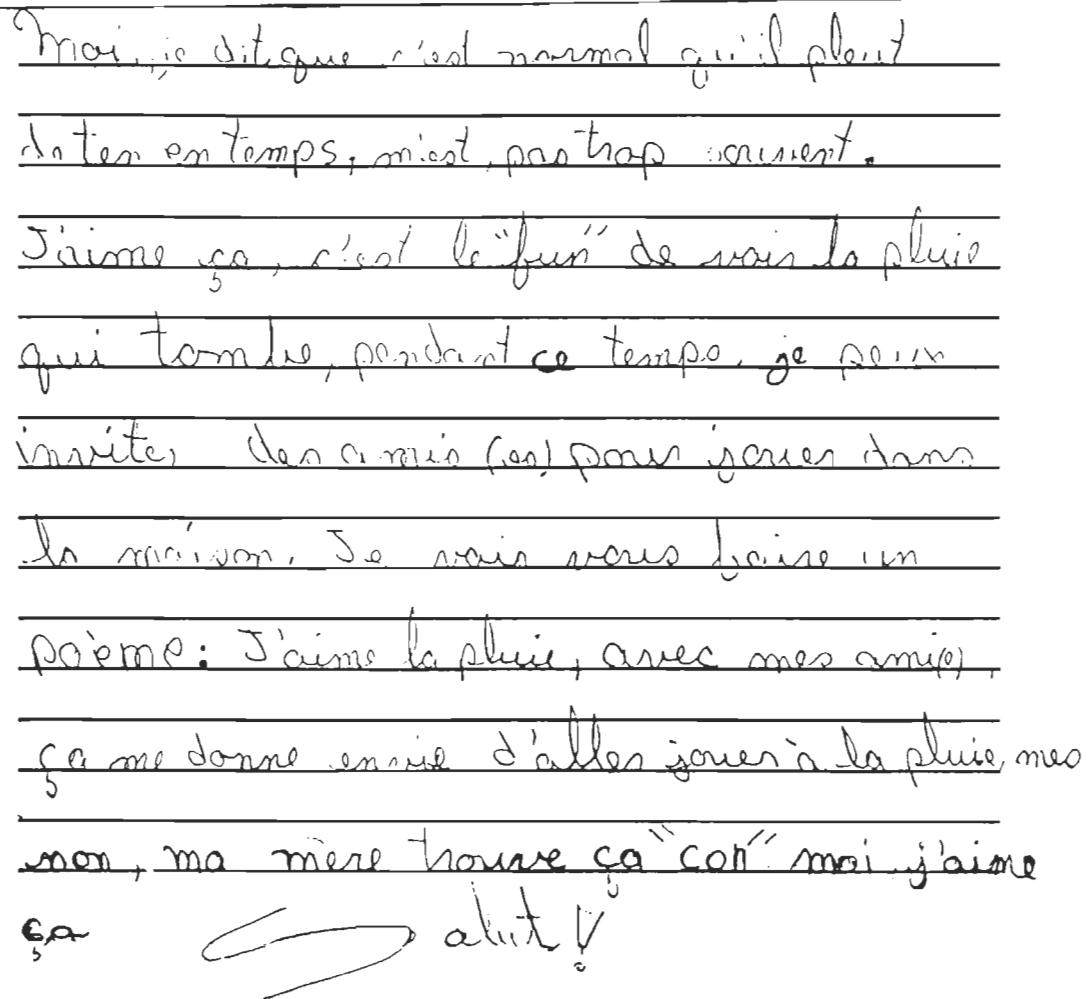 Moi, je dit que c'est normal qu'il pleut
de tes en temps, m'est, pas trop souvent.
J'aime ça, c'est le "fun" de voir la pluie
qui tombe, pendant ce temps, je peux
inviter des amis (es) pour jouer dans
la maison. Je vais vous faire un
poème: J'aime la pluie, avec mes ami(e),
ça me donne envie d'aller jouer à la pluie, mes
non, ma mère trouve ça "con" moi j'aime
ça Salut !